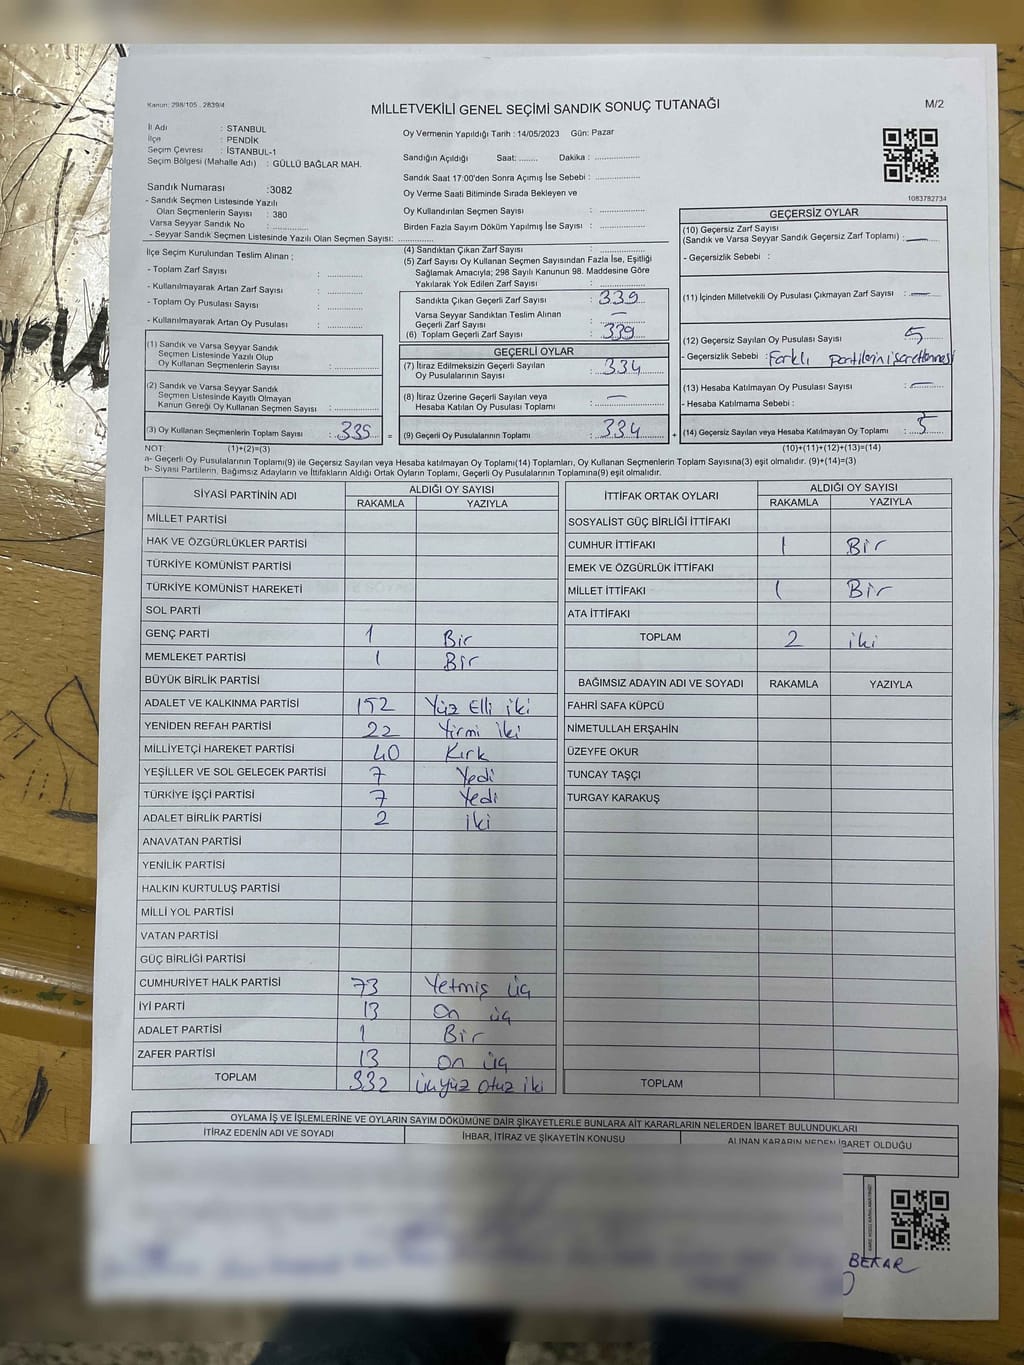 Kanun: 298/105 - 2839/4
MİLLETVEKİLİ GENEL SEÇİMİ SANDIK SONUÇ TUTANAĞI
M/2
İl Adı : STANBUL
İlçe : PENDİK
Seçim Çevresi : İSTANBUL-1
Seçim Bölgesi (Mahalle Adı) : GÜLLÜ BAĞLAR MAH.
Sandık Numarası :3082
- Sandık Seçmen Listesinde Yazılı
Olan Seçmenlerin Sayısı : 380
Varsa Seyyar Sandık No : ............
- Seyyar Sandık Seçmen Listesinde Yazılı Olan Seçmen Sayısı: ............
Oy Vermenin Yapıldığı Tarih : 14/05/2023 Gün: Pazar
Sandığın Açıldığı Saat: ........ Dakika : ..................
Sandık Saat 17:00'den Sonra Açımış İse Sebebi : ..................
Oy Verme Saati Bitiminde Sırada Bekleyen ve
Oy Kullandırılan Seçmen Sayısı : ..................
Birden Fazla Sayım Döküm Yapılmış İse Sayısı : ..................
1083782734
İlçe Seçim Kurulundan Teslim Alınan ;
- Toplam Zarf Sayısı : ..................
- Kullanılmayarak Artan Zarf Sayısı : ..................
- Toplam Oy Pusulası Sayısı : ..................
- Kullanılmayarak Artan Oy Pusulası : ..................
(1) Sandık ve Varsa Seyyar Sandık
Seçmen Listesinde Yazılı Olup
Oy Kullanan Seçmenlerin Sayısı : ............
(2) Sandık ve Varsa Seyyar Sandık
Seçmen Listesinde Kayıtlı Olmayan
Kanun Gereği Oy Kullanan Seçmen Sayısı : ............
(3) Oy Kullanan Seçmenlerin Toplam Sayısı : 339
(4) Sandıktan Çıkan Zarf Sayısı : ..................
(5) Zarf Sayısı Oy Kullanan Seçmen Sayısından Fazla İse, Eşitliği
Sağlamak Amacıyla; 298 Sayılı Kanunun 98. Maddesine Göre
Yakılarak Yok Edilen Zarf Sayısı : ..................
Sandıkta Çıkan Geçerli Zarf Sayısı : 339
Varsa Seyyar Sandıktan Teslim Alınan
Geçerli Zarf Sayısı : —
(6) Toplam Geçerli Zarf Sayısı : 339
GEÇERLİ OYLAR
(7) İtiraz Edilmeksizin Geçerli Sayılan
Oy Pusulalarının Sayısı : 334
(8) İtiraz Üzerine Geçerli Sayılan veya
Hesaba Katılan Oy Pusulası Toplamı : —
= (9) Geçerli Oy Pusulalarının Toplamı : 334
GEÇERSİZ OYLAR
(10) Geçersiz Zarf Sayısı
(Sandık ve Varsa Seyyar Sandık Geçersiz Zarf Toplamı) : —
- Geçersizlik Sebebi :
(11) İçinden Milletvekili Oy Pusulası Çıkmayan Zarf Sayısı : —
(12) Geçersiz Sayılan Oy Pusulası Sayısı : 5
- Geçersizlik Sebebi : Farklı partilerin işaretlenmesi
(13) Hesaba Katılmayan Oy Pusulası Sayısı : —
- Hesaba Katılmama Sebebi :
+ (14) Geçersiz Sayılan veya Hesaba Katılmayan Oy Toplamı : 5
NOT: (1)+(2)=(3) (10)+(11)+(12)+(13)=(14)
a- Geçerli Oy Pusulalarının Toplamı(9) ile Geçersiz Sayılan veya Hesaba katılmayan Oy Toplamı(14) Toplamları, Oy Kullanan Seçmenlerin Toplam Sayısına(3) eşit olmalıdır. (9)+(14)=(3)
b- Siyasi Partilerin, Bağımsız Adayların ve İttifakların Aldığı Ortak Oyların Toplamı, Geçerli Oy Pusulalarının Toplamına(9) eşit olmalıdır.
SİYASİ PARTİNİN ADI ALDIĞI OY SAYISI
RAKAMLA YAZIYLA
MİLLET PARTİSİ
HAK VE ÖZGÜRLÜKLER PARTİSİ
TÜRKİYE KOMÜNİST PARTİSİ
TÜRKİYE KOMÜNİST HAREKETİ
SOL PARTİ
GENÇ PARTİ 1 Bir
MEMLEKET PARTİSİ 1 Bir
BÜYÜK BİRLİK PARTİSİ
ADALET VE KALKINMA PARTİSİ 152 Yüz Elli iki
YENİDEN REFAH PARTİSİ 22 Yirmi iki
MİLLİYETÇİ HAREKET PARTİSİ 40 Kırk
YEŞİLLER VE SOL GELECEK PARTİSİ 7 Yedi
TÜRKİYE İŞÇİ PARTİSİ 7 Yedi
ADALET BİRLİK PARTİSİ 2 iki
ANAVATAN PARTİSİ
YENİLİK PARTİSİ
HALKIN KURTULUŞ PARTİSİ
MİLLİ YOL PARTİSİ
VATAN PARTİSİ
GÜÇ BİRLİĞİ PARTİSİ
CUMHURİYET HALK PARTİSİ 73 Yetmiş üç
İYİ PARTİ 13 On üç
ADALET PARTİSİ 1 Bir
ZAFER PARTİSİ 13 On üç
TOPLAM 332 üçyüz otuz iki
İTTİFAK ORTAK OYLARI ALDIĞI OY SAYISI
RAKAMLA YAZIYLA
SOSYALİST GÜÇ BİRLİĞİ İTTİFAKI
CUMHUR İTTİFAKI 1 Bir
EMEK VE ÖZGÜRLÜK İTTİFAKI
MİLLET İTTİFAKI 1 Bir
ATA İTTİFAKI
TOPLAM 2 iki
BAĞIMSIZ ADAYIN ADI VE SOYADI RAKAMLA YAZIYLA
FAHRİ SAFA KÜPCÜ
NİMETULLAH ERŞAHİN
ÜZEYFE OKUR
TUNCAY TAŞÇI
TURGAY KARAKUŞ
TOPLAM
OYLAMA İŞ VE İŞLEMLERİNE VE OYLARIN SAYIM DÖKÜMÜNE DAİR ŞİKAYETLERLE BUNLARA AİT KARARLARIN NELERDEN İBARET BULUNDUKLARI
İTİRAZ EDENİN ADI VE SOYADI İHBAR, İTİRAZ VE ŞİKAYETİN KONUSU ALINAN KARARIN NEDEN İBARET OLDUĞU
BEKAR